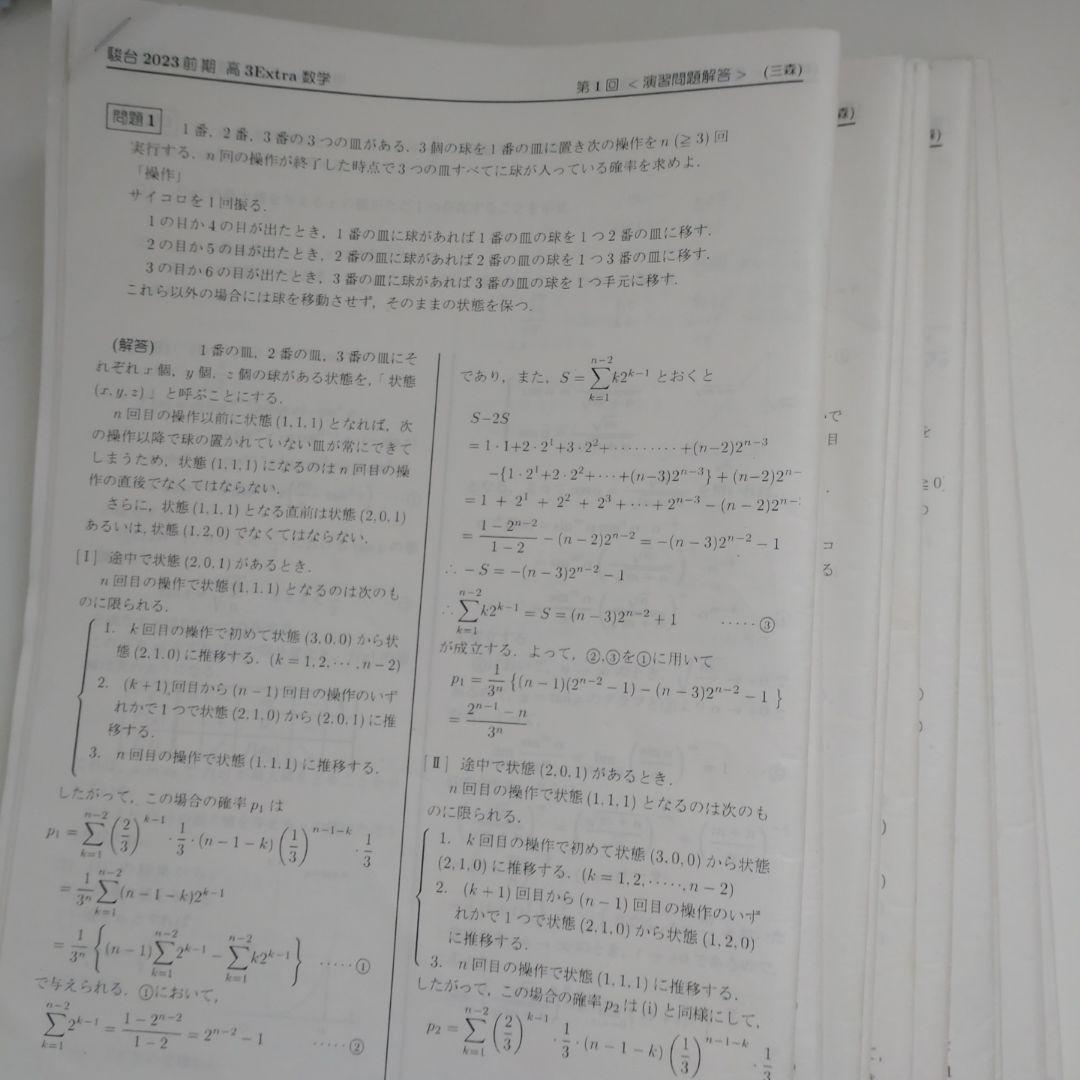 駿台 2023 前期 高 3Extra 数学
第 1 回 < 演習問題解答 > (三森)
問題 1
1 番, 2 番, 3 番の 3 つの皿がある. 3 個の球を 1 番の皿に置き次の操作を n (≧ 3) 回
実行する. n 回の操作が終了した時点で 3 つの皿すべてに球が入っている確率を求めよ.
「操作」
サイコロを 1 回振る.
1 の目か 4 の目が出たとき, 1 番の皿に球があれば 1 番の皿の球を 1 つ 2 番の皿に移す.
2 の目か 5 の目が出たとき, 2 番の皿に球があれば 2 番の皿の球を 1 つ 3 番の皿に移す.
3 の目か 6 の目が出たとき, 3 番の皿に球があれば 3 番の皿の球を 1 つ手元に移す.
これら以外の場合には球を移動させず, そのままの状態を保つ.
(解答) 1 番の皿, 2 番の皿, 3 番の皿にそ
れぞれ x 個, y 個, z 個の球がある状態を,「状態
(x, y, z)」と呼ぶことにする.
n 回目の操作以前に状態 (1, 1, 1) となれば, 次
の操作以降で球の置かれていない皿が常にできて
しまうため, 状態 (1, 1, 1) になるのは n 回目の操
作の直後でなくてはならない.
さらに, 状態 (1, 1, 1) となる直前は状態 (2, 0, 1)
あるいは, 状態 (1, 2, 0) でなくてはならない.
[Ⅰ] 途中で状態 (2, 0, 1) があるとき.
n 回目の操作で状態 (1, 1, 1) となるのは次のも
のに限られる.
1. k 回目の操作で初めて状態 (3, 0, 0) から状
態 (2, 1, 0) に推移する. (k = 1, 2, ⋯, n − 2)
2. (k + 1) 回目から (n − 1) 回目の操作のいず
れかで 1 つで状態 (2, 1, 0) から (2, 0, 1) に推
移する.
3. n 回目の操作で状態 (1, 1, 1) に推移する.
したがって, この場合の確率 p₁ は
p₁ = ∑_{k=1}^{n−2} (2/3)^{k−1} · 1/3 · (n − 1 − k) (1/3)^{n−1−k} · 1/3
= 1/3ⁿ ∑_{k=1}^{n−2} (n − 1 − k)2^{k−1}
= 1/3ⁿ { (n − 1) ∑_{k=1}^{n−2} 2^{k−1} − ∑_{k=1}^{n−2} k2^{k−1} } ⋯⋯①
で与えられる. ①において,
∑_{k=1}^{n−2} 2^{k−1} = (1 − 2^{n−2})/(1 − 2) = 2^{n−2} − 1 ⋯⋯②
であり, また, S = ∑_{k=1}^{n−2} k2^{k−1} とおくと
S − 2S
= 1 · 1 + 2 · 2¹ + 3 · 2² + ⋯⋯⋯ + (n − 2)2^{n−3}
−{1 · 2¹ + 2 · 2² + ⋯ + (n − 3)2^{n−3}} + (n − 2)2^{n−
= 1 + 2¹ + 2² + 2³ + ⋯ + 2^{n−3} − (n − 2)2^{n−
= (1 − 2^{n−2})/(1 − 2) − (n − 2)2^{n−2} = −(n − 3)2^{n−2} − 1
∴ −S = −(n − 3)2^{n−2} − 1
∴ ∑_{k=1}^{n−2} k2^{k−1} = S = (n − 3)2^{n−2} + 1 ⋯⋯③
が成立する. よって, ②,③を①に用いて
p₁ = 1/3ⁿ {(n − 1)(2^{n−2} − 1) − (n − 3)2^{n−2} − 1 }
= (2^{n−1} − n)/3ⁿ
[Ⅱ] 途中で状態 (2, 0, 1) があるとき.
n 回目の操作で状態 (1, 1, 1) となるのは次のも
のに限られる.
1. k 回目の操作で初めて状態 (3, 0, 0) から状態
(2, 1, 0) に推移する. (k = 1, 2, ⋯⋯, n − 2)
2. (k + 1) 回目から (n − 1) 回目の操作のいず
れかで 1 つで状態 (2, 1, 0) から状態 (1, 2, 0)
に推移する.
3. n 回目の操作で状態 (1, 1, 1) に推移する.
したがって, この場合の確率 p₂ は (i) と同様にして,
p₂ = ∑_{k=1}^{n−2} (2/3)^{k−1} · 1/3 · (n − 1 − k) (1/3)^{n−1−k} · 1/3
森)
で
目
コ
る
≧ 0